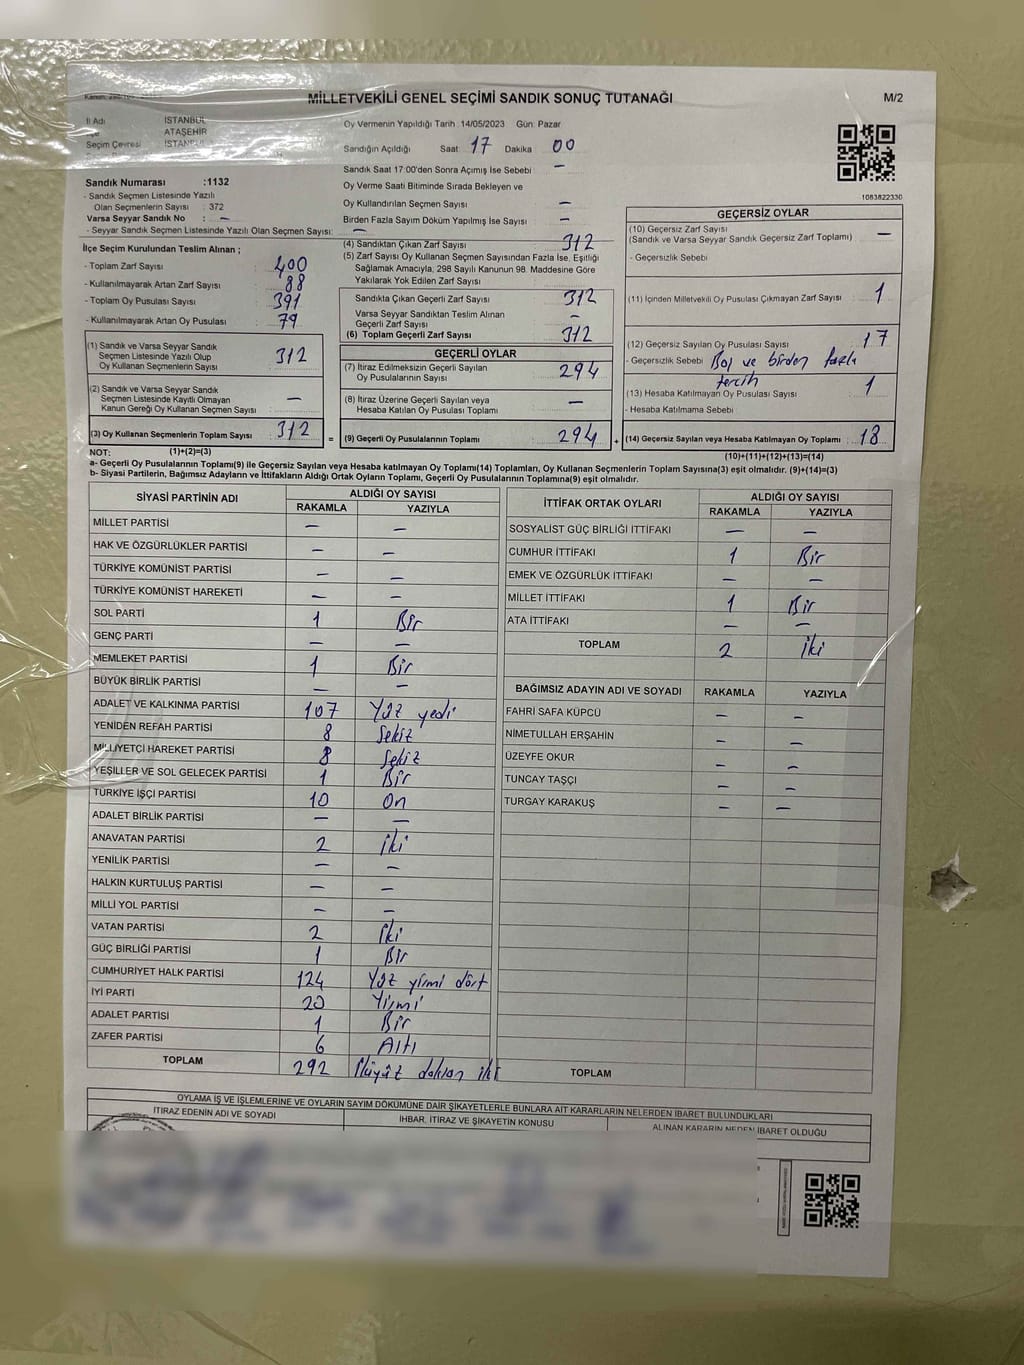 MİLLETVEKİLİ GENEL SEÇİMİ SANDIK SONUÇ TUTANAĞI
M/2
İl Adı İSTANBUL
ATAŞEHİR
Seçim Çevresi İSTANBUL
Oy Vermenin Yapıldığı Tarih :14/05/2023 Gün: Pazar
Sandığın Açıldığı Saat 17 Dakika 00
Sandık Saat 17:00'den Sonra Açımış İse Sebebi : —
Oy Verme Saati Bitiminde Sırada Bekleyen ve
Oy Kullandırılan Seçmen Sayısı : —
Birden Fazla Sayım Döküm Yapılmış İse Sayısı : —
1083822330
Sandık Numarası :1132
- Sandık Seçmen Listesinde Yazılı
Olan Seçmenlerin Sayısı : 372
Varsa Seyyar Sandık No : —
- Seyyar Sandık Seçmen Listesinde Yazılı Olan Seçmen Sayısı: —
İlçe Seçim Kurulundan Teslim Alınan ;
- Toplam Zarf Sayısı : 400
- Kullanılmayarak Artan Zarf Sayısı : 88
- Toplam Oy Pusulası Sayısı : 391
- Kullanılmayarak Artan Oy Pusulası : 79
(1) Sandık ve Varsa Seyyar Sandık
Seçmen Listesinde Yazılı Olup
Oy Kullanan Seçmenlerin Sayısı 312
(2) Sandık ve Varsa Seyyar Sandık
Seçmen Listesinde Kayıtlı Olmayan
Kanun Gereği Oy Kullanan Seçmen Sayısı —
(3) Oy Kullanan Seçmenlerin Toplam Sayısı 312
(4) Sandıktan Çıkan Zarf Sayısı 312
(5) Zarf Sayısı Oy Kullanan Seçmen Sayısından Fazla İse, Eşitliği
Sağlamak Amacıyla, 298 Sayılı Kanunun 98. Maddesine Göre
Yakılarak Yok Edilen Zarf Sayısı
Sandıkta Çıkan Geçerli Zarf Sayısı 312
Varsa Seyyar Sandıktan Teslim Alınan
Geçerli Zarf Sayısı —
(6) Toplam Geçerli Zarf Sayısı 312
GEÇERLİ OYLAR
(7) İtiraz Edilmeksizin Geçerli Sayılan
Oy Pusulalarının Sayısı 294
(8) İtiraz Üzerine Geçerli Sayılan veya
Hesaba Katılan Oy Pusulası Toplamı —
= (9) Geçerli Oy Pusulalarının Toplamı 294
GEÇERSİZ OYLAR
(10) Geçersiz Zarf Sayısı
(Sandık ve Varsa Seyyar Sandık Geçersiz Zarf Toplamı) —
- Geçersizlik Sebebi
(11) İçinden Milletvekili Oy Pusulası Çıkmayan Zarf Sayısı 1
(12) Geçersiz Sayılan Oy Pusulası Sayısı 17
- Geçersizlik Sebebi Boş ve birden fazla
tercih
(13) Hesaba Katılmayan Oy Pusulası Sayısı 1
- Hesaba Katılmama Sebebi
+ (14) Geçersiz Sayılan veya Hesaba Katılmayan Oy Toplamı 18
NOT: (1)+(2)=(3)
(10)+(11)+(12)+(13)=(14)
a- Geçerli Oy Pusulalarının Toplamı(9) ile Geçersiz Sayılan veya Hesaba katılmayan Oy Toplamı(14) Toplamları, Oy Kullanan Seçmenlerin Toplam Sayısına(3) eşit olmalıdır. (9)+(14)=(3)
b- Siyasi Partilerin, Bağımsız Adayların ve İttifakların Aldığı Ortak Oyların Toplamı, Geçerli Oy Pusulalarının Toplamına(9) eşit olmalıdır.
SİYASİ PARTİNİN ADI ALDIĞI OY SAYISI
RAKAMLA YAZIYLA
MİLLET PARTİSİ — —
HAK VE ÖZGÜRLÜKLER PARTİSİ — —
TÜRKİYE KOMÜNİST PARTİSİ — —
TÜRKİYE KOMÜNİST HAREKETİ — —
SOL PARTİ 1 Bir
GENÇ PARTİ — —
MEMLEKET PARTİSİ 1 Bir
BÜYÜK BİRLİK PARTİSİ — —
ADALET VE KALKINMA PARTİSİ 107 Yüz yedi
YENİDEN REFAH PARTİSİ 8 Sekiz
MİLLİYETÇİ HAREKET PARTİSİ 8 Sekiz
YEŞİLLER VE SOL GELECEK PARTİSİ 1 Bir
TÜRKİYE İŞÇİ PARTİSİ 10 On
ADALET BİRLİK PARTİSİ — —
ANAVATAN PARTİSİ 2 iki
YENİLİK PARTİSİ — —
HALKIN KURTULUŞ PARTİSİ — —
MİLLİ YOL PARTİSİ — —
VATAN PARTİSİ 2 İki
GÜÇ BİRLİĞİ PARTİSİ 1 Bir
CUMHURİYET HALK PARTİSİ 124 Yüz yirmi dört
İYİ PARTİ 20 Yirmi
ADALET PARTİSİ 1 Bir
ZAFER PARTİSİ 6 Altı
TOPLAM 292 İkiyüz doksan iki
İTTİFAK ORTAK OYLARI ALDIĞI OY SAYISI
RAKAMLA YAZIYLA
SOSYALİST GÜÇ BİRLİĞİ İTTİFAKI — —
CUMHUR İTTİFAKI 1 Bir
EMEK VE ÖZGÜRLÜK İTTİFAKI — —
MİLLET İTTİFAKI 1 Bir
ATA İTTİFAKI — —
TOPLAM 2 İki
BAĞIMSIZ ADAYIN ADI VE SOYADI RAKAMLA YAZIYLA
FAHRİ SAFA KÜPCÜ — —
NİMETULLAH ERŞAHİN — —
ÜZEYFE OKUR — —
TUNCAY TAŞÇI — —
TURGAY KARAKUŞ — —
TOPLAM
OYLAMA İŞ VE İŞLEMLERİNE VE OYLARIN SAYIM DÖKÜMÜNE DAİR ŞİKAYETLERLE BUNLARA AİT KARARLARIN NELERDEN İBARET BULUNDUKLARI
İTİRAZ EDENİN ADI VE SOYADI İHBAR, İTİRAZ VE ŞİKAYETİN KONUSU ALINAN KARARIN NEDEN İBARET OLDUĞU